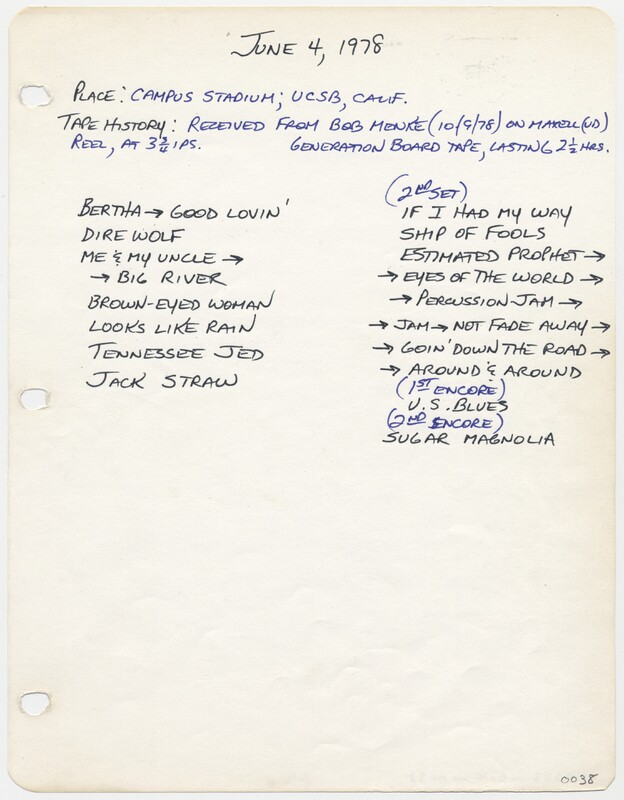 JUNE 4, 1978
PLACE: CAMPUS STADIUM; UCSB, CALIF.
TAPE HISTORY: RECEIVED FROM BOB MENKE (10/9/78) ON MAXELL (UD)
REEL, AT 3 3/4 IPS. GENERATION BOARD TAPE, LASTING 2 1/2 HRS.
BERTHA → GOOD LOVIN'
DIRE WOLF
ME & MY UNCLE →
→ BIG RIVER
BROWN-EYED WOMAN
LOOKS LIKE RAIN
TENNESSEE JED
JACK STRAW
(2ND SET)
IF I HAD MY WAY
SHIP OF FOOLS
ESTIMATED PROPHET →
→ EYES OF THE WORLD →
→ PERCUSSION-JAM →
→ JAM → NOT FADE AWAY →
→ GOIN' DOWN THE ROAD →
→ AROUND & AROUND
(1ST ENCORE)
U.S. BLUES
(2ND ENCORE)
SUGAR MAGNOLIA
0038